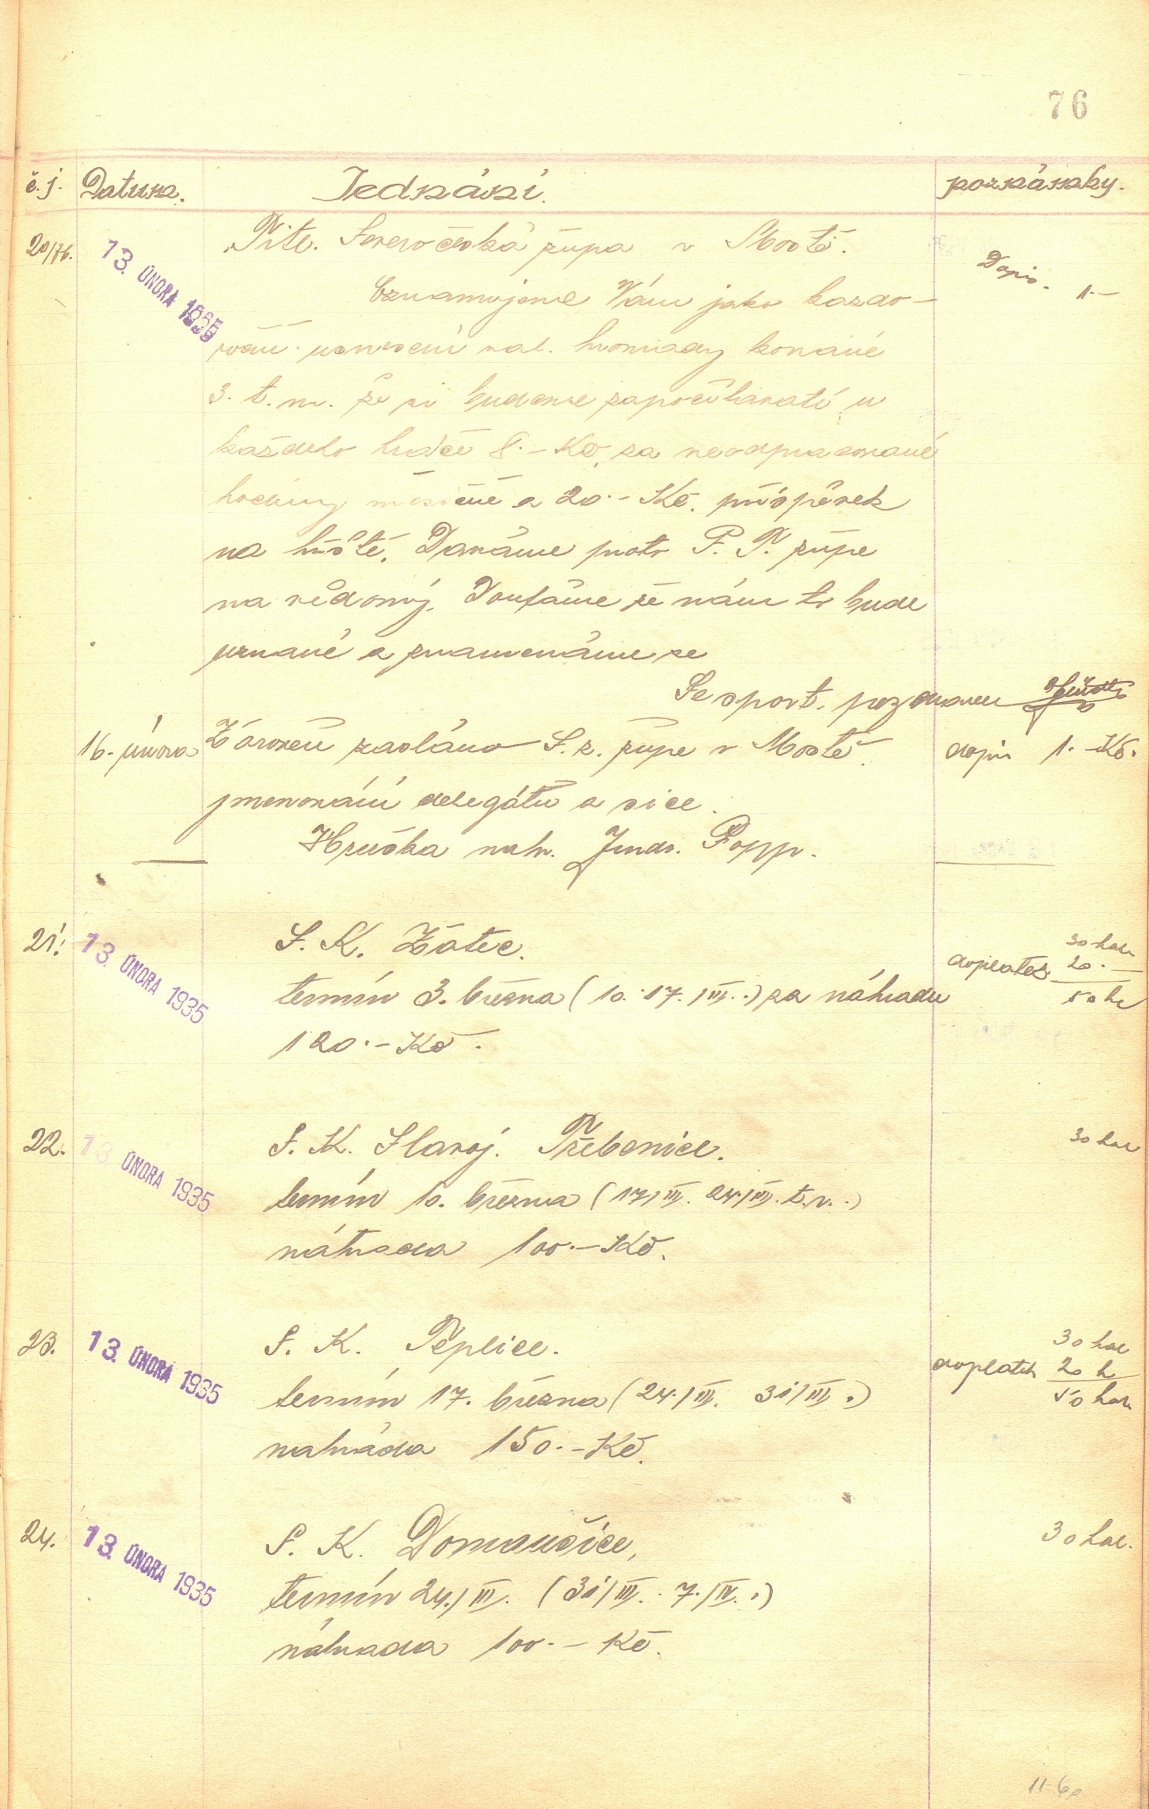 76
č.j. Datum. Jednání. poznámky.
20/76. 13. ÚNORA 1935 Tit. Severočeská župa v Mostě. Dopis. 1.-
Oznamujeme Vám jako každo-
roční usnesení val. hromady konané
3. t.m. že si budeme započítávati u
každého hráče 8.- Kč. za neodpracované
hodiny měsíčně a 20.- Kč. příspěvek
na hřiště. Dáváme proto P. T. župe
na vědomí. Doufáme že nám to bude
uznané a znamenáme se
Se sport. pozdravem
16. února Zároveň zasláno S. z. župe v Mostě. dopis 1.- Kč.
jmenování delegátů a sice.
Hruška nahr. Jindr. Popp.
21. 13. ÚNORA 1935 S. K. Žatec. 30 hal.
doplatek 20.-
50 ha
termín 3. března (10. 17./III.) za náhradu
120.- Kč.
22. 13 ÚNORA 1935 S. K. Slavoj. Třebenice. 30 hal
termín 10. března (17/III. 24/III. t.r.)
náhrada 100.- Kč.
23. 13. ÚNORA 1935 S. K. Teplice. 30 hal
doplatek 20 h
50 hal.
termín 17. března (24./III. 31/III.)
nahráda 150.- Kč.
24. 13. ÚNORA 1935 S. K. Domoušice, 30 hal.
termín 24./III. (31/III. 7./IV.)
náhrada 100.- Kč.
11.60